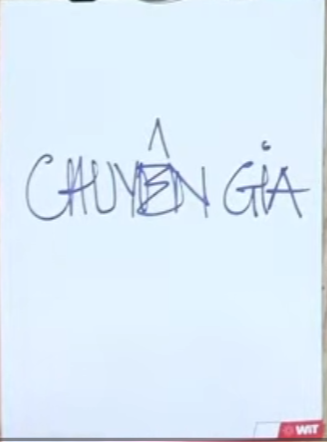 CHUYÊN GIA
WIT